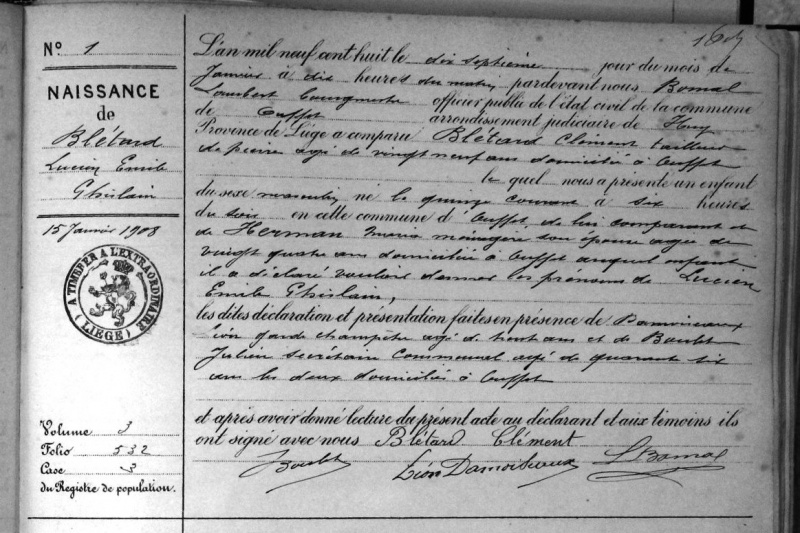 N° 1
NAISSANCE
de
Blétard
Lucien Emile
Ghislain
15 Janvier 1908
A TIMBRER A L'EXTRAORDINAIRE
(LIEGE)
Volume 3
Folio 532
Case 3
du Registre de population.
L'an mil neuf cent huit le dix septième jour du mois de
Janvier à dix heures du matin pardevant nous Bomal
Lambert Bourgmestre officier public de l'état civil de la commune
de Ouffet arrondissement judiciaire de Huy
Province de Liége a comparu Blétard Clément tailleur
de pierre agé de vingt neuf ans domicilié à Ouffet
le quel nous a présenté un enfant
du sexe masculin, né le quinze courant à six heures
du soir en cette commune d'Ouffet, de lui comparant et
de Herman Maria ménagère son épouse agée de
vingt quatre ans domiciliée à Ouffet auquel enfant
il a déclaré vouloir donner les prénoms de Lucien
Emile Ghislain,
les dites déclaration et présentation faites en présence de Damoiseaux
Léon garde champêtre agé de trente ans et de Boulet
Julien Secrétaire Communal agé de quarante six
ans les deux domiciliés à Ouffet
et après avoir donné lecture du présent acte au déclarant et aux témoins ils
ont signé avec nous Blétard Clément
JBoulet Léon Damoiseaux L Bomal